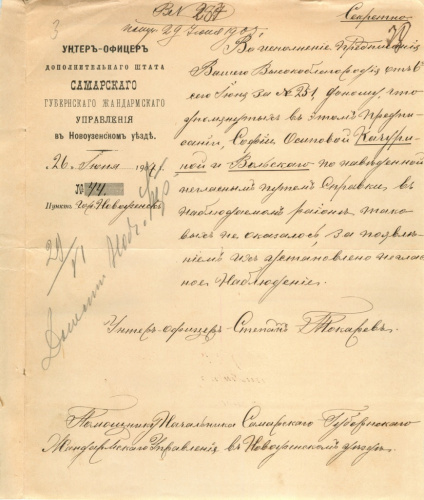 В№ 234
Секретно
3
УНТЕРЪ-ОФИЦЕРЪ
ДОПОЛНИТЕЛЬНАГО ШТАТА
САМАРСКАГО
ГУБЕРНСКАГО ЖАНДАРМСКАГО
УПРАВЛЕНІЯ
въ Новоузенскомъ уѣздѣ.
26 Іюня
№ 44.
Пунктъ гор. Новоузенскъ
29/VI
Во исполненіе Предписанія
Вашего Высокоблагородія отъ
сего Іюня за № 231, доношу что
упомянутыхъ въ этомъ предпи-
саніи, Софіи Осиповой Качури-
ной и Вольскаго по наведенной
негласнымъ путемъ справке, въ
наблюдаемомъ районѣ тако-
выхъ не оказалось, за появле-
ніемъ ихъ установлено неглас-
ное наблюденіе.
Унтеръ-офицеръ Степанъ Токаревъ.
Помощнику Начальника Самарскаго Губернскаго
Жандармскаго Управленія въ Новоузенскомъ уѣздѣ.